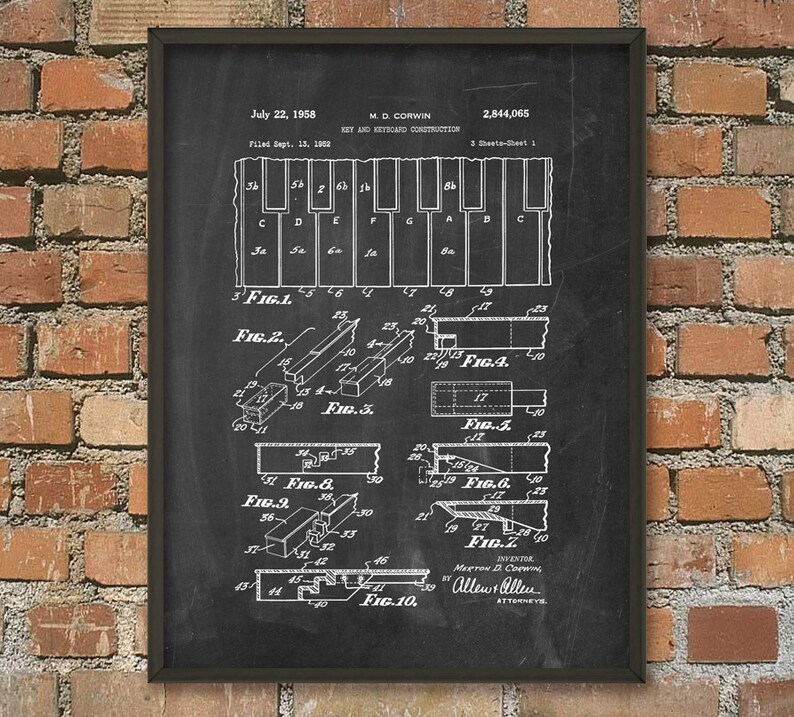 July 22, 1958 M. D. CORWIN 2,844,065
KEY AND KEYBOARD CONSTRUCTION
Filed Sept. 13, 1952 3 Sheets-Sheet 1
3b 5b 2 6b 1b 8b
C D E F G A B C
3a 5a 6a 1a 8a
3 FIG.1. 5 6 1 7 8 9
FIG.2. 23 10 15 13 19 17 18 20 11
23 4 10 17 18 4 FIG.3.
21 17 23 20 22 19 13 FIG.4. 10
17 10 FIG.5.
34 35 31 FIG.8. 30
20 17 23 26 25 15 24 19 FIG.6. 10
FIG.9. 38 36 30 33 32 31 37
17 23 21 29 19 27 28 10 FIG.7.
42 46 45 43 44 41 39 40 FIG.10.
INVENTOR.
MERTON D. CORWIN,
BY Allen & Allen
ATTORNEYS.